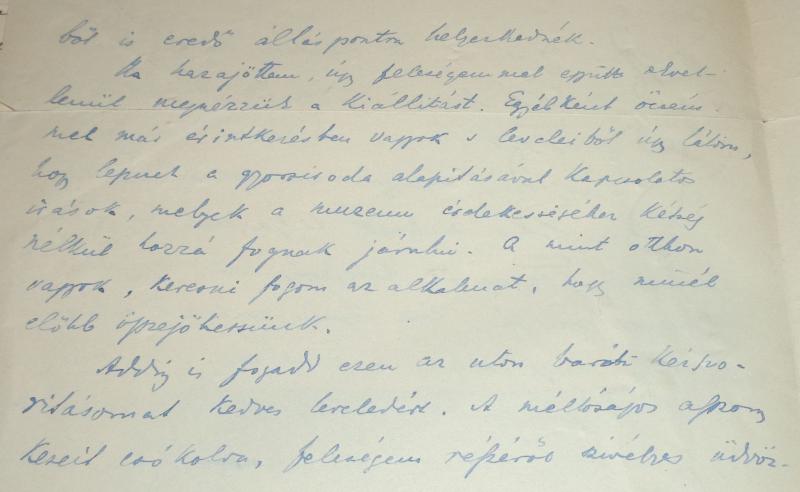 ből is eredő állásponton helyezkednék.
Ha hazajöttem, úgy feleségemmel együtt okvet-
lenül megnézzük a kiállítást. Egyébként öcsém-
mel már érintkezésben vagyok s leveleiből úgy látom,
hogy lesznek a gyorsiroda alapításával kapcsolatos
írások, melyek a muzeum érdekességéhez kétség
nélkül hozzá fognak járulni. A mint otthon
vagyok, keresni fogom az alkalmat, hogy minél
előbb összejöhessünk.
Addig is fogadd ezen az uton baráti kézszo-
ritásomat kedves leveledért. A méltóságos asszony
kezeit csókolva, feleségem részéről szívélyes üdvöz-